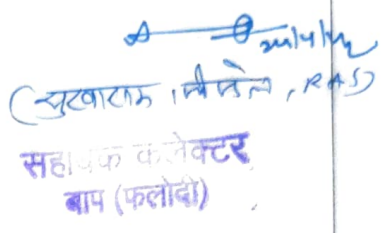 (सुखाराम पिण्डेल, RAS)
सहायक कलेक्टर
बाप (फलोदी)